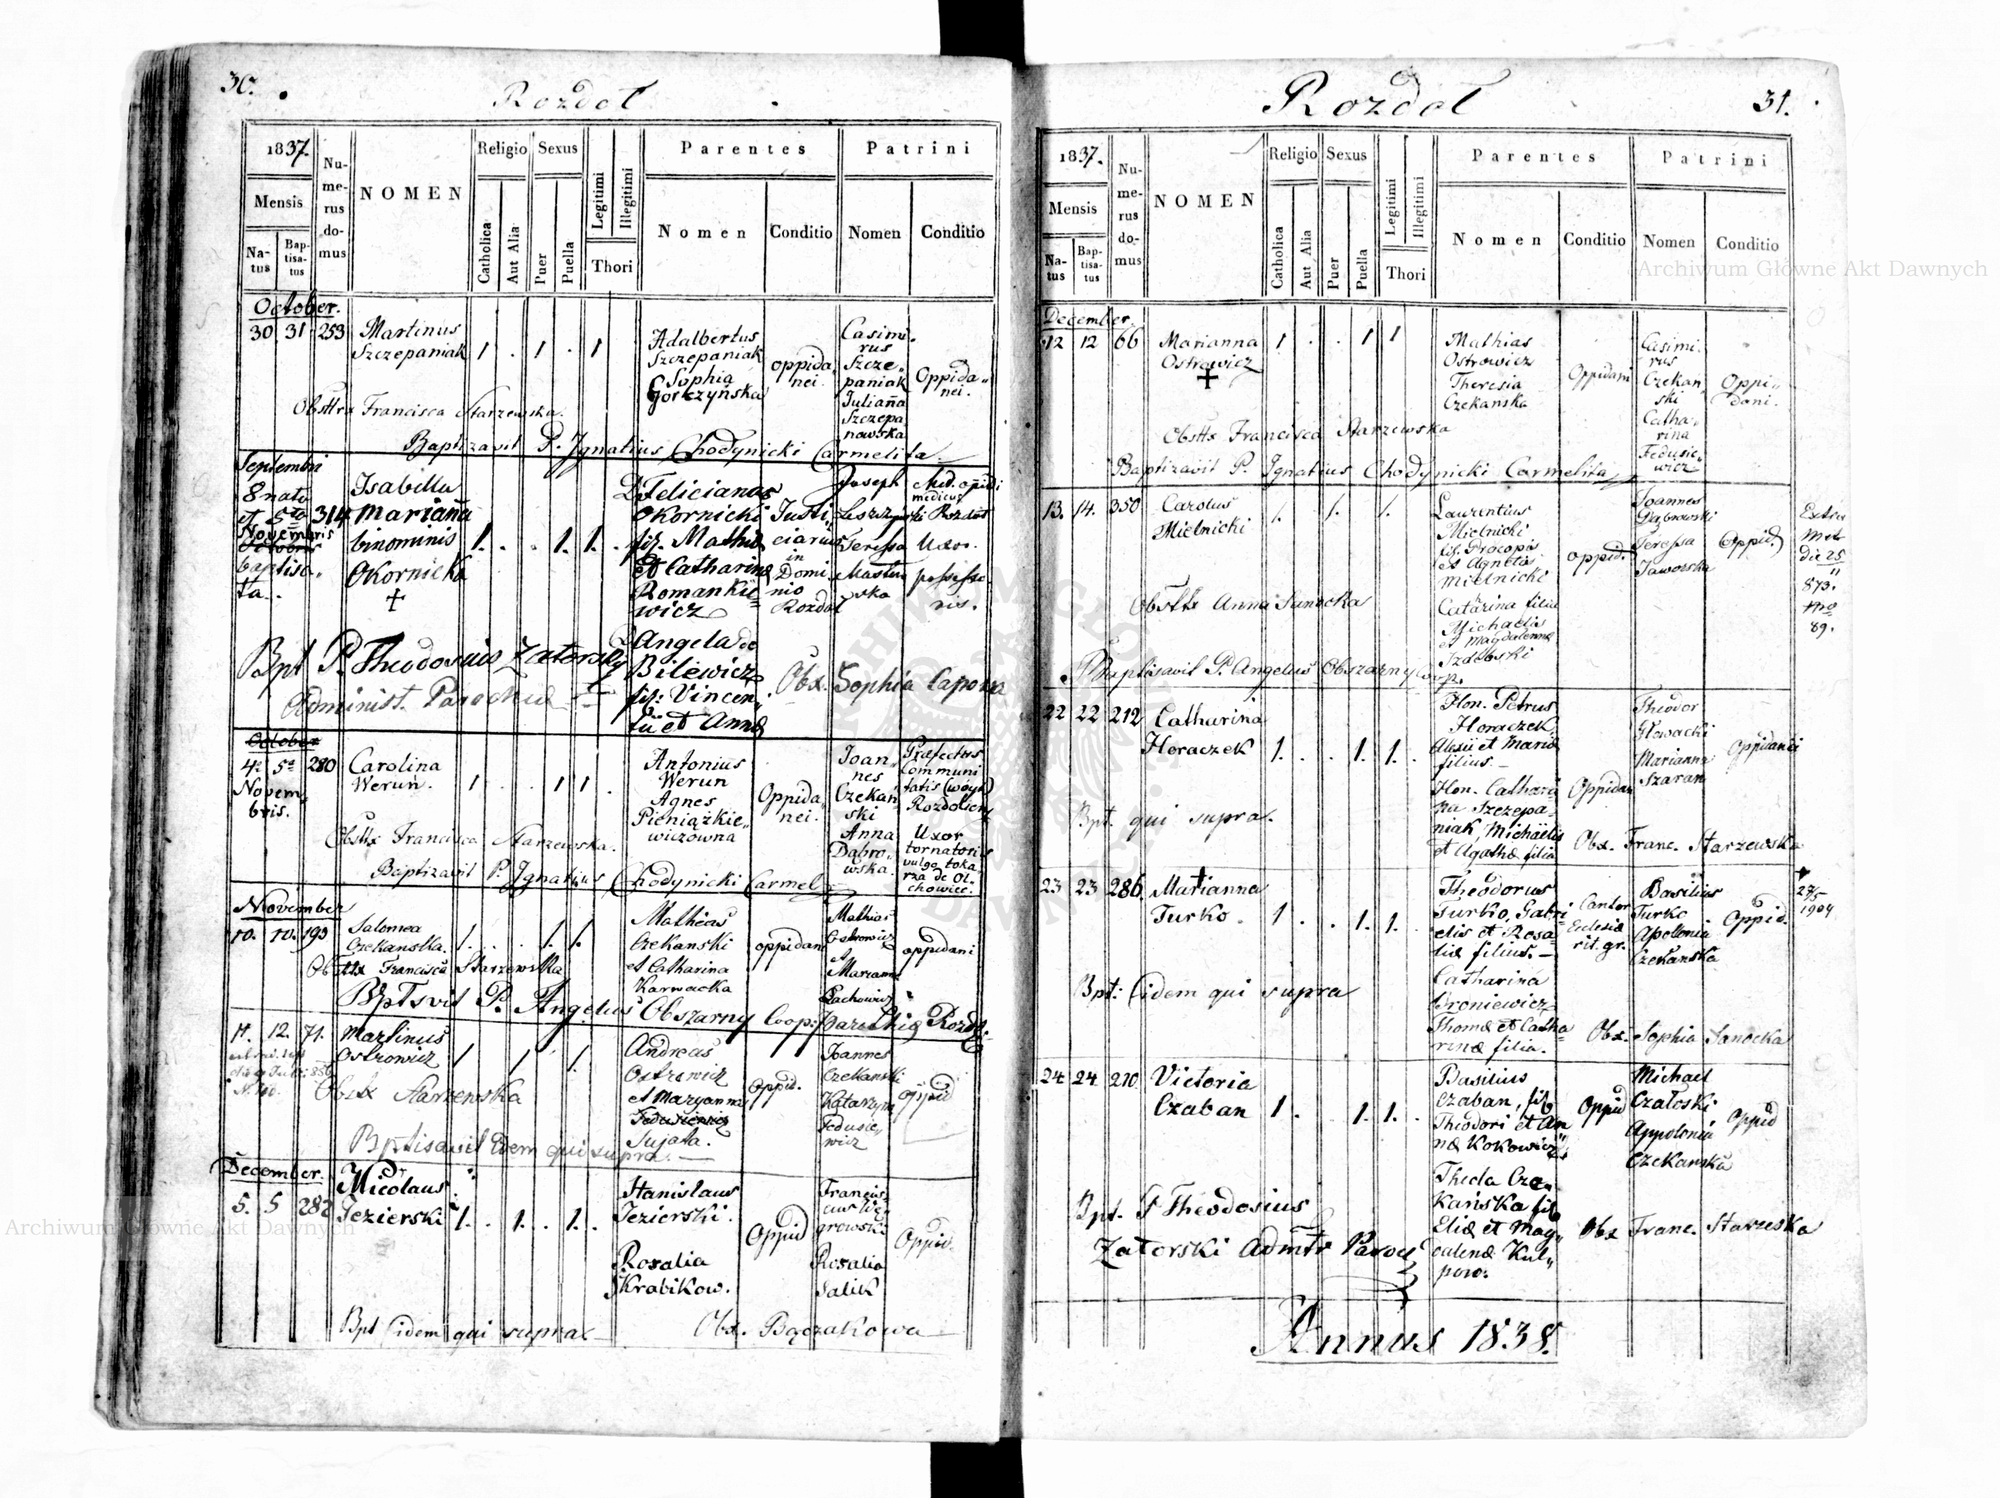 30.
Rozdoł
1837.
Mensis
Natus
Baptisatus
Numerus domus
NOMEN
Religio
Catholica
Aut Alia
Sexus
Puer
Puella
Legitimi
Illegitimi
Thori
Parentes
Nomen
Conditio
Patrini
Nomen
Conditio
October.
30 31 253
Martinus
Szczepaniak
1 . 1 . 1
Adalbertus
Szczepaniak
Sophia
Gorczyńska
oppida„
nei.
Casimi„
rus
Szcze„
paniak
Julianna
Szczepa
nowska
Oppida„
nei.
Obsttrx Francisca Starzewska.
Baptizavit P. Ignatius Chodynicki Carmelita.
Septembri
8 nata
et 5ta
Novembris
baptisa„
ta.
314
Isabella
Marianna
binominis
Okornicka
1. . . 1. 1.
Felicianus
Okornicki
fil. Mathiæ
et Catharinæ
Romankie=
wicz
Angela de
Bilewicz
fil: Vincen„
tii et Annæ
Justi„
ciarius
in
Domi„
nio
Rozdoł
Joseph
Teressa
medicus
Rozdoł
Uxor
possesso
ris.
Bpt P. Theodosius Zatorski
Administ. Parochiæ
Obx. Sophia
October
4a 5a 280
Novem„
bris.
Carolina
Werun.
1 . . 1 1 .
Antonius
Werun
Agnes
Pieniążkie„
wiczowna
Oppida„
nei.
Joan„
nes
Czekań„
ski
Anna
Dąbro„
wska.
Præfectus
Communi
tatis (woyt)
Rozdolens
Uxor
tornatoris
vulgo toka„
rza de Ol„
chowiec.
Obsttx Francisca Starzewska.
Baptizavit P. Ignatius Chodynicki Carmel
November
10. 10. 193
Salomea
Czekanska.
1. . . 1. 1.
Mathias
Czekanski
et Catharina
Karwacka
oppidani
Mathias
Ostrowicz
et
Marianna
Lachowicz
oppidani
Obsttx Francisca Starzewska
Bptsvit P. Angelus Obszarny Coop: Parochiæ Rozdł.
11. 12. 71.
Martinus
Ostrowicz
1 1 1.
Andreas
Ostrowicz
et Maryanna
Fedusiewicz
Sujata.
Oppid.
Joannes
Czekanski
Katarzyna
Fedusie„
wicz
oppid
Obstx Starzewska
Bptisavit Idem qui supra.
December.
5. 5 282
Nicolaus
Jezierski
1. . 1. . 1. .
Stanislaus
Jezierski.
Rosalia
Skrabikow.
Oppid
Francis„
cus Wę„
growski
Rosalia
Salik
Oppid.
Bpt idem qui supra
Obx. Bączakowa
31.
Rozdoł
1837.
Mensis
Natus
Baptisatus
Numerus domus
NOMEN
Religio
Catholica
Aut Alia
Sexus
Puer
Puella
Legitimi
Illegitimi
Thori
Parentes
Nomen
Conditio
Patrini
Nomen
Conditio
December.
12 12 66
Marianna
Ostrowicz
1 . . 1 1
Mathias
Ostrowicz
Theresia
Czekanska
Oppidani
Casimi„
rus
Czekań
ski
Catha„
rina
Fedusie„
wicz
Oppi„
dani.
Obsttx Francisca Starzewska
Baptizavit P. Ignatius Chodynicki Carmelita
13. 14. 350
Carolus
Mielnicki
1. 1. 1.
Laurentius
Mielnicki
fil. Procopii
et Agnetæ
Mielnicki
Catarina filia
Michaelis
et Magdalenæ
Izdebski
oppid.
Joannes
Dąbrowski
Teressa
Jaworska
Oppid.
Extra
Met
die 25
11
873.
Nro
89.
Obsttx Anna Sanocka
Baptisavit P. Angelus Obszarny Coop.
22 22 212
Catharina
Horaczek
1. . . 1. 1.
Hon. Petrus
Horaczek
Alexii et Mariæ
filius.
Hon. Cathari„
na Szczepa„
niak, Michäelis
et Agathæ filia
Oppidan
Theodor
Głowacki
Marianna
Szaran
Oppidanei
Bpt. qui supra.
Obx. Franc. Starzewska
23 23 286
Marianna
Turko.
1 . . 1. 1.
Theodorus
Turko, Gabri„
elis et Rosa„
liæ filius.
Catharina
Broniewicz
Thomæ et Catha„
rinæ filia.
Cantor
Ecclesiæ
rit. gr.
Basilius
Turko
Apolonia
Czekańska
Oppid.
27/5
1904
Bpt: idem qui supra
Obx. Sophia Sanocka
24 24 210
Victoria
Czaban
1 . . 1. 1.
Basilius
Czaban, fil
Theodori et An„
næ Kokowicz
Thecla Cze„
kańska fil
Eliæ et Mag„
dalenæ Kul„
pow.
Oppid
Michael
Czałoski
Appolonia
Czekańska
Oppid
Bpt. P Theodosius
Zatorski Admtr Paroch
Obx Franc. Starzeska
Annus 1838.
Archiwum Główne Akt Dawnych
Archiwum Główne Akt Dawnych